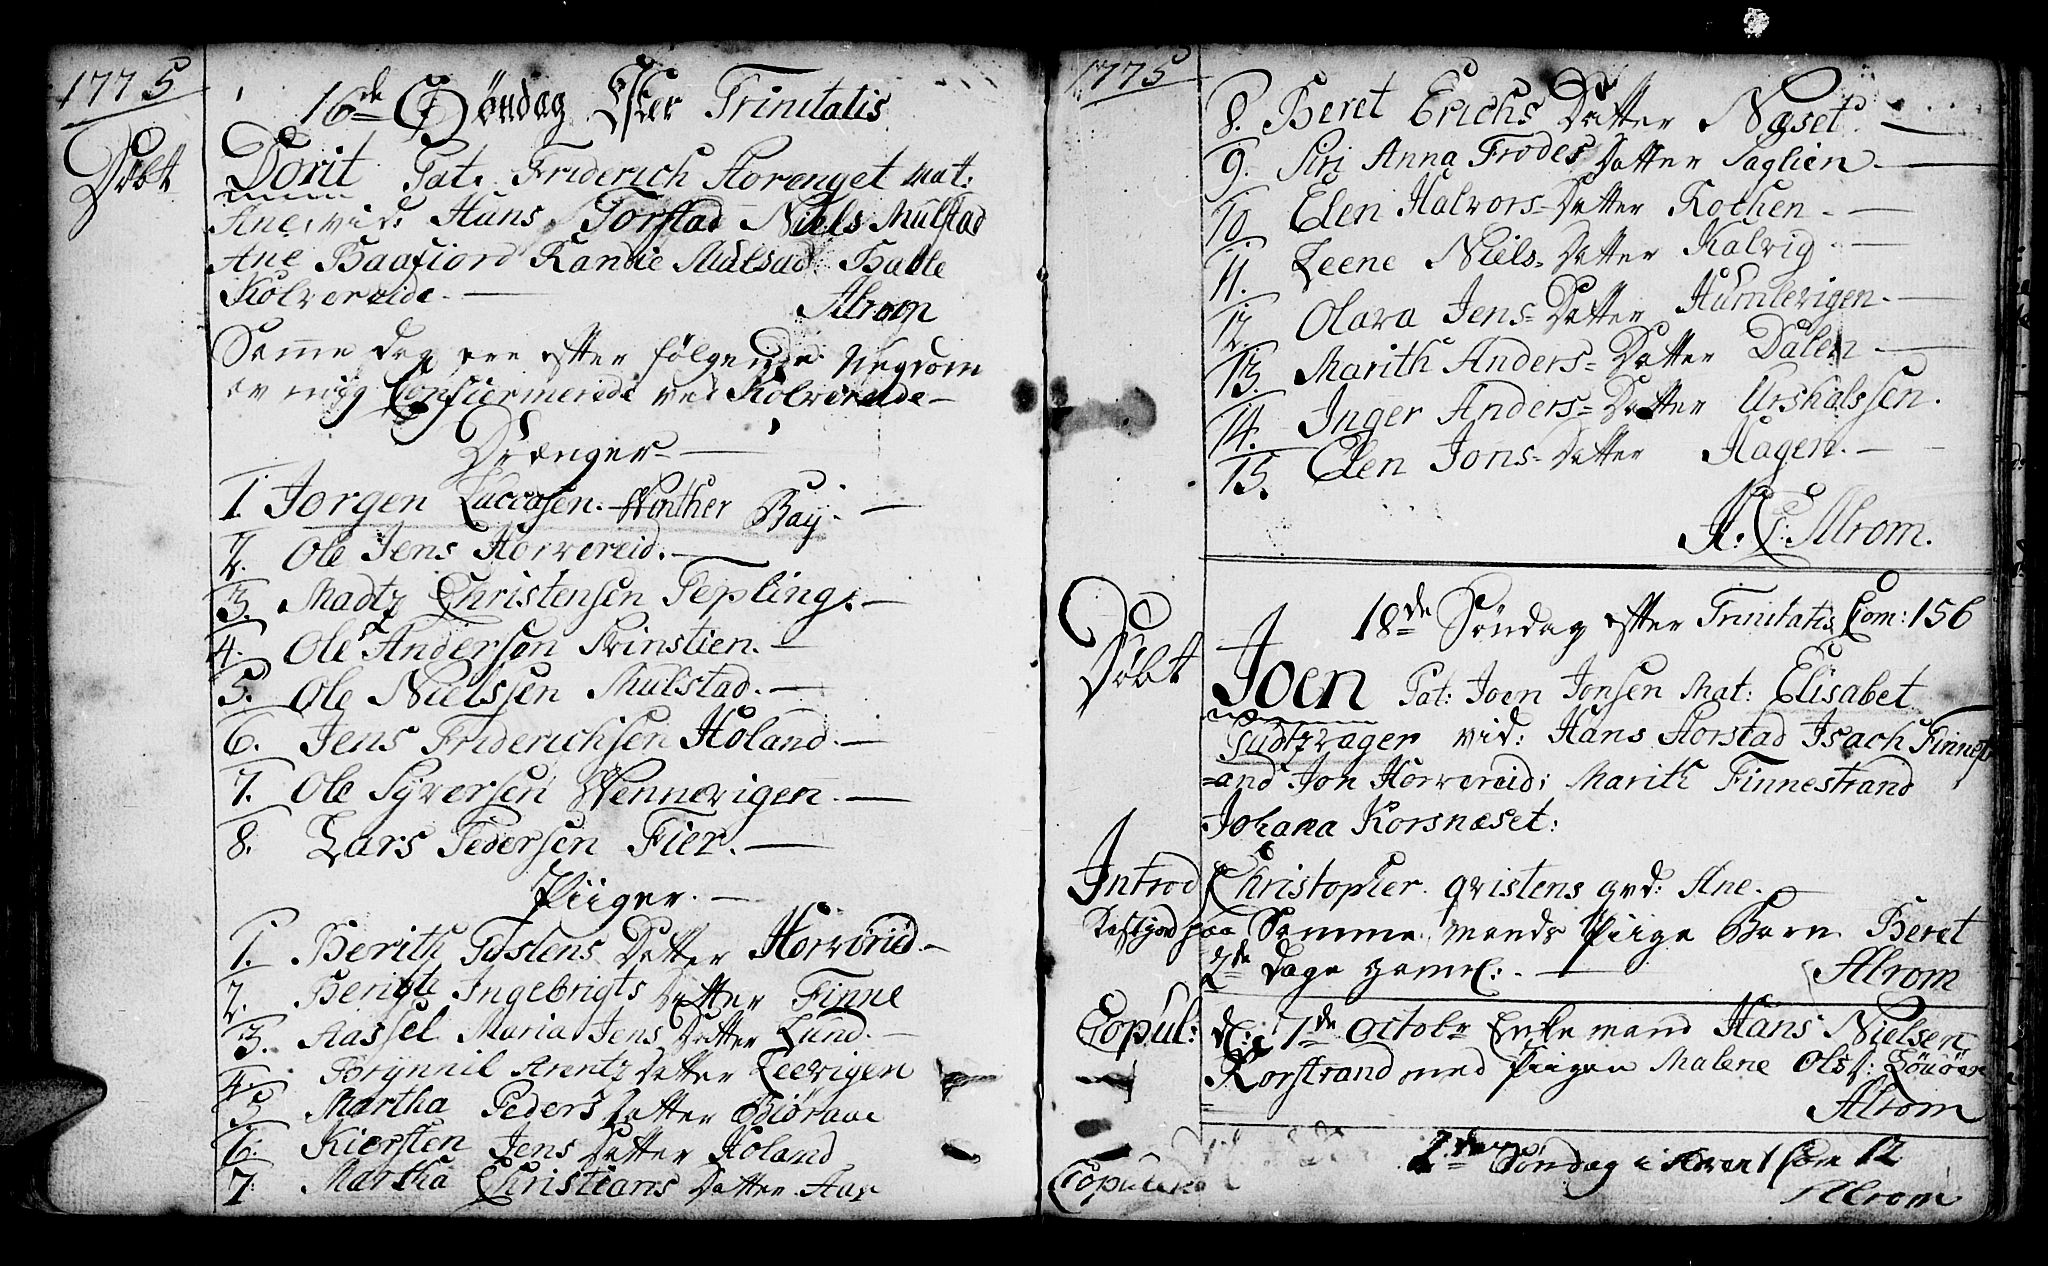 1775
16de Söndag Efter Trinitatis
Döbt
Dorit Pat: Friderich Storenget Mat:
Ane, vid: Hans Torstad Niels Mulstad
Ane Baafiord Randie Mulstad
Kolvereide.
Alrom
Samme Dag ere efter følgende Ungdom
av mig Confiermerede ved Kolvereide
Drænger
1. Jorgen Luccasen Winther Bay.
2. Ole Jens Horvereid.
3. Madtz Christensen Tepling.
4. Ole Andersøn Svinstien.
5. Ole Nielssen Mulstad.
6. Jens Friderichsen Holand.
7. Ole Syversen Wennevigen.
8. Lars Pedersen Fier.
Piiger.
1. Berith Tostens Datter Horvereid
2. Berithe Ingebrigts Datter Finne
3. Aassel Maria Jens Datter Lund.
4. Brynnil Arentz Datter Leevigen
5. Martha Peders Datter Biøraae
6. Kiersten Jens Datter Holand
7. Martha Christians Datter Aar
1775
8. Beret Erichs Datter Næset
9. Siri Anna Frodes Datter Saglien.
10. Elen Halvors Datter Kochen.
11. Leene Niels Datter Kalvig
12. Olava Jens Datter Humlevigen.
13. Marith Anders Datter Dalen
14. Inger Anders Datter Urshalssen.
15. Elen Jons Datter Hagen.
Alrom.
18de Søndag efter Trinitatis Com: 156
Döbt
Joen Pat: Joen Jonsen Mat: Elisabet
Gudtzvager vid: Hans Storstad Isach Finnestr
=and Jon Horvereid; Marith Finnestrand
Johana Korsnæset:
Introd Christopher qvistens qvd: Ane.
paa Samme mands Piige Barn Beret
2de Dage gaml:
Alrom
Copul: d: 17de Octobr Enke mand Hans Nielsen
Korstrand med Piigen Malene Olsd:
Alrom
2den Söndag i Advent Com 12
Copul
Alrom